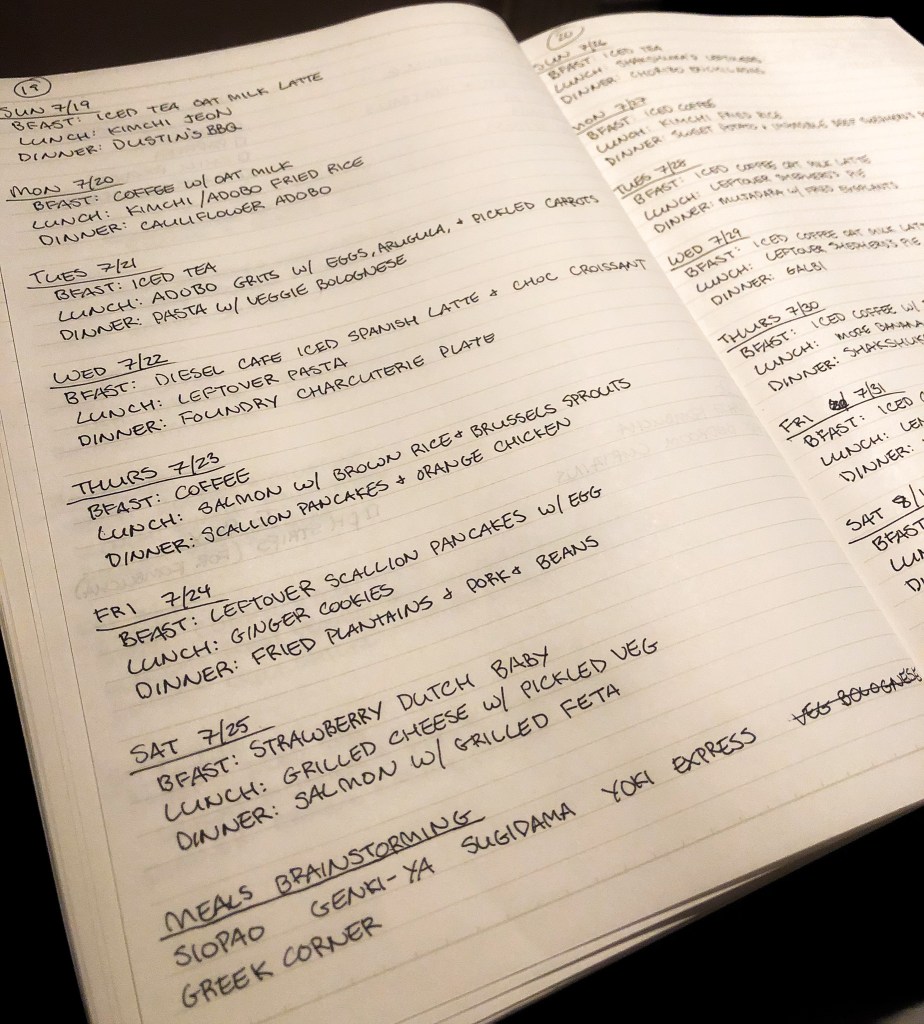 19
SUN 7/19
BFAST: ICED TEA OAT MILK LATTE
LUNCH: KIMCHI JEON
DINNER: DUSTIN'S BBQ
MON 7/20
BFAST: COFFEE W/ OAT MILK
LUNCH: KIMCHI/ADOBO FRIED RICE
DINNER: CAULIFLOWER ADOBO
TUES 7/21
BFAST: ICED TEA
LUNCH: ADOBO GRITS W/ EGGS, ARUGULA, + PICKLED CARROTS
DINNER: PASTA W/ VEGGIE BOLOGNESE
WED 7/22
BFAST: DIESEL CAFE ICED SPANISH LATTE + CHOC CROISSANT
LUNCH: LEFTOVER PASTA
DINNER: FOUNDRY CHARCUTERIE PLATE
THURS 7/23
BFAST: COFFEE
LUNCH: SALMON W/ BROWN RICE + BRUSSELS SPROUTS
DINNER: SCALLION PANCAKES + ORANGE CHICKEN
FRI 7/24
BFAST: LEFTOVER SCALLION PANCAKES W/ EGG
LUNCH: GINGER COOKIES
DINNER: FRIED PLANTAINS + PORK + BEANS
SAT 7/25
BFAST: STRAWBERRY DUTCH BABY
LUNCH: GRILLED CHEESE W/ PICKLED VEG
DINNER: SALMON W/ GRILLED FETA
MEALS BRAINSTORMING
SIOPAO GENKI-YA SUGIDAMA YOKI EXPRESS VEG BOLOGNESE
GREEK CORNER
20
SUN 7/26
BFAST: ICED TEA
LUNCH: SHAKSHUKA LEFTOVERS
DINNER: CHORIZO ENCHILADAS
MON 7/27
BFAST: ICED COFFEE
LUNCH: KIMCHI FRIED RICE
DINNER: SWEET POTATO + IMPOSSIBLE BEEF SHEPHERD'S
TUES 7/28
BFAST: ICED COFFEE OAT MILK LATTE
LUNCH: LEFTOVER SHEPHERD'S PIE
DINNER: MUJADARA W/ FRIED EGGPLANTS
WED 7/29
BFAST: ICED COFFEE OAT MILK
LUNCH: LEFTOVER SHEPHERD'S PIE
DINNER: GALBI
THURS 7/30
BFAST: ICED COFFEE W/
LUNCH: MORE
DINNER:
FRI 7/31
BFAST: ICED
LUNCH:
DINNER:
SAT 8/1
BFAST